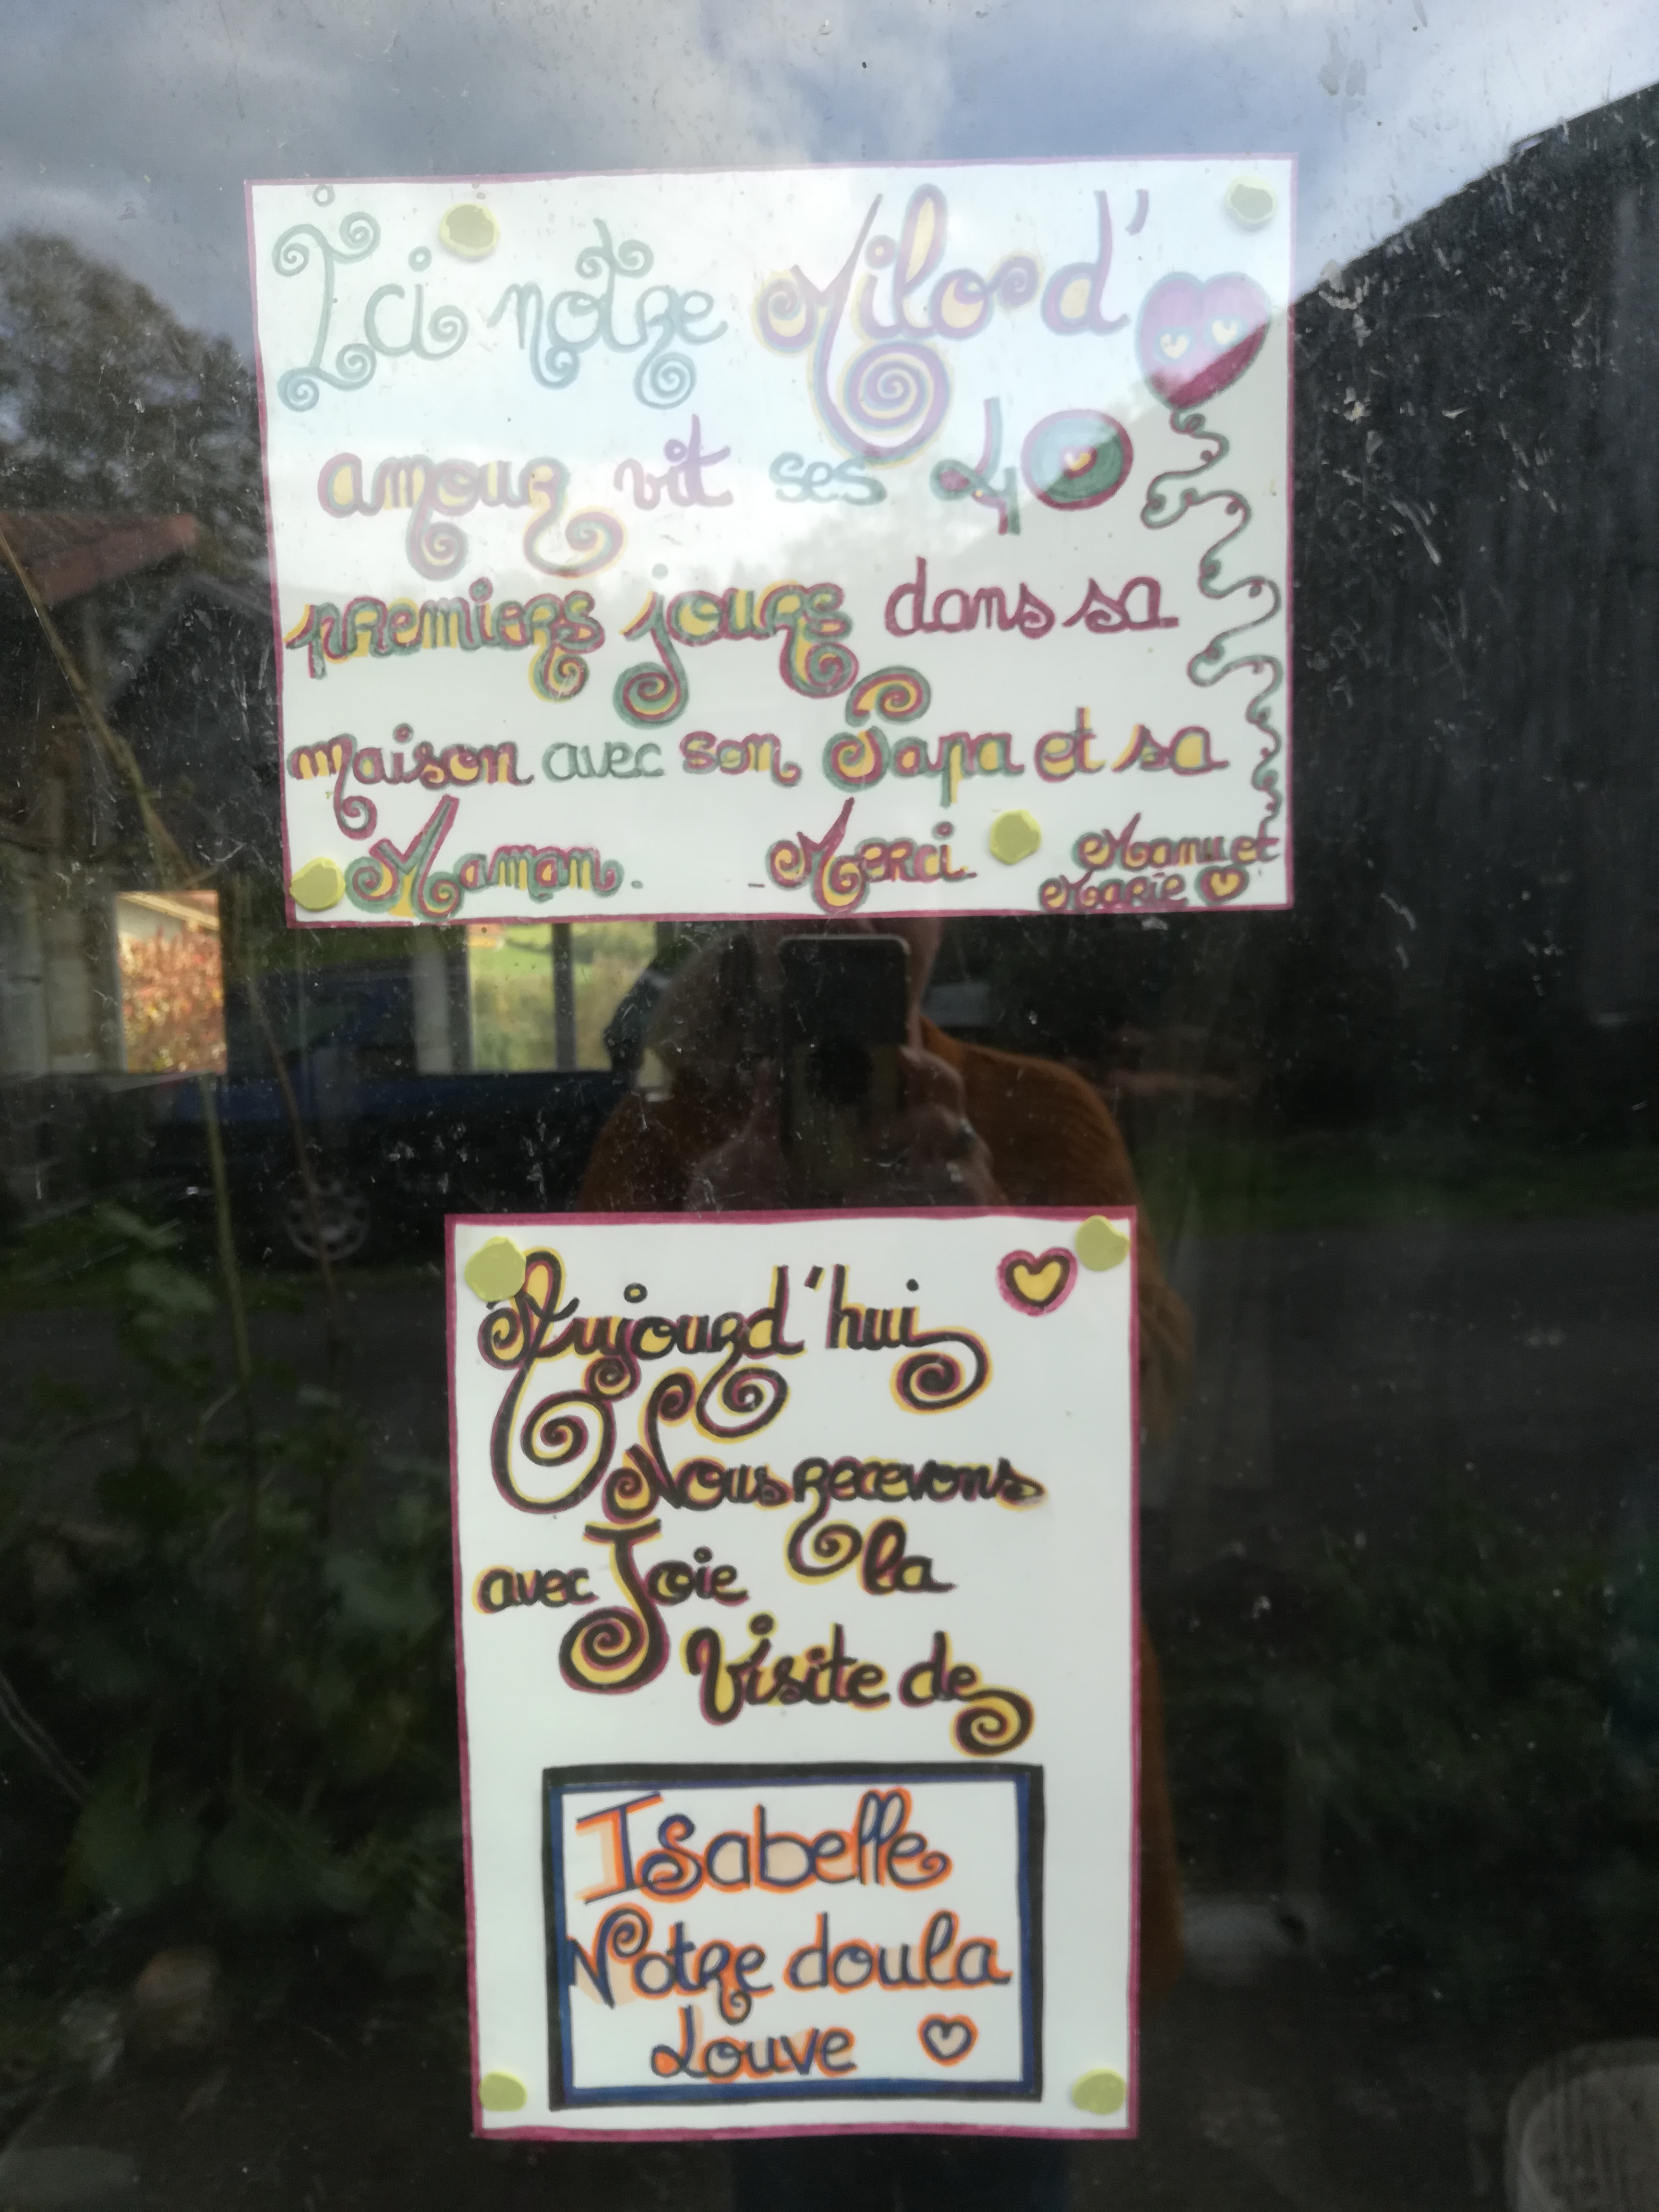 Ici notre Milo d'
amour vit ses 40
premiers jours dans sa
maison avec son Papa et sa
Maman. - Merci. Manu et
Marie
Aujourd'hui
Nous recevons
avec Joie la
Visite de
Isabelle
Notre doula
Louve